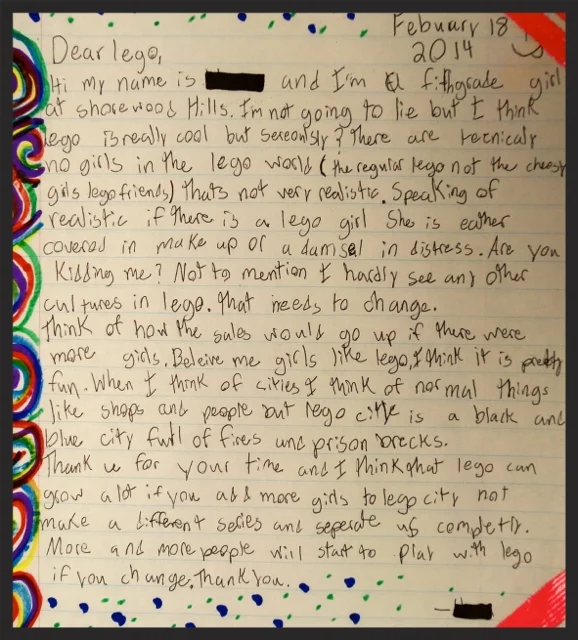 Febuary 18
2014
Dear lego,
Hi my name is and I'm a fifthgrade girl
at shorewood Hills. I'm not going to lie but I think
lego is really cool but sereonsly? There are tecnicaly
no girls in the lego world (the regular lego not the cheesy
girls lego friends) thats not very realistic. Speaking of
realistic if there is a lego girl She is eather
covered in make up or a damsel in distress. Are you
Kidding me? Not to mention I hardly see any other
cultures in lego. that needs to change.
Think of how the sales would go up if there were
more girls. Beleive me girls like lego, I think it is pretty
fun. When I think of cities I think of normal things
like shops and people but lego citie is a black and
blue city full of fires and prison brecks.
Thank u for your time and I think that lego can
grow a lot if you add more girls to lego city not
make a different series and seperate us completly.
More and more people will start to play with lego
if you change. Thank you.